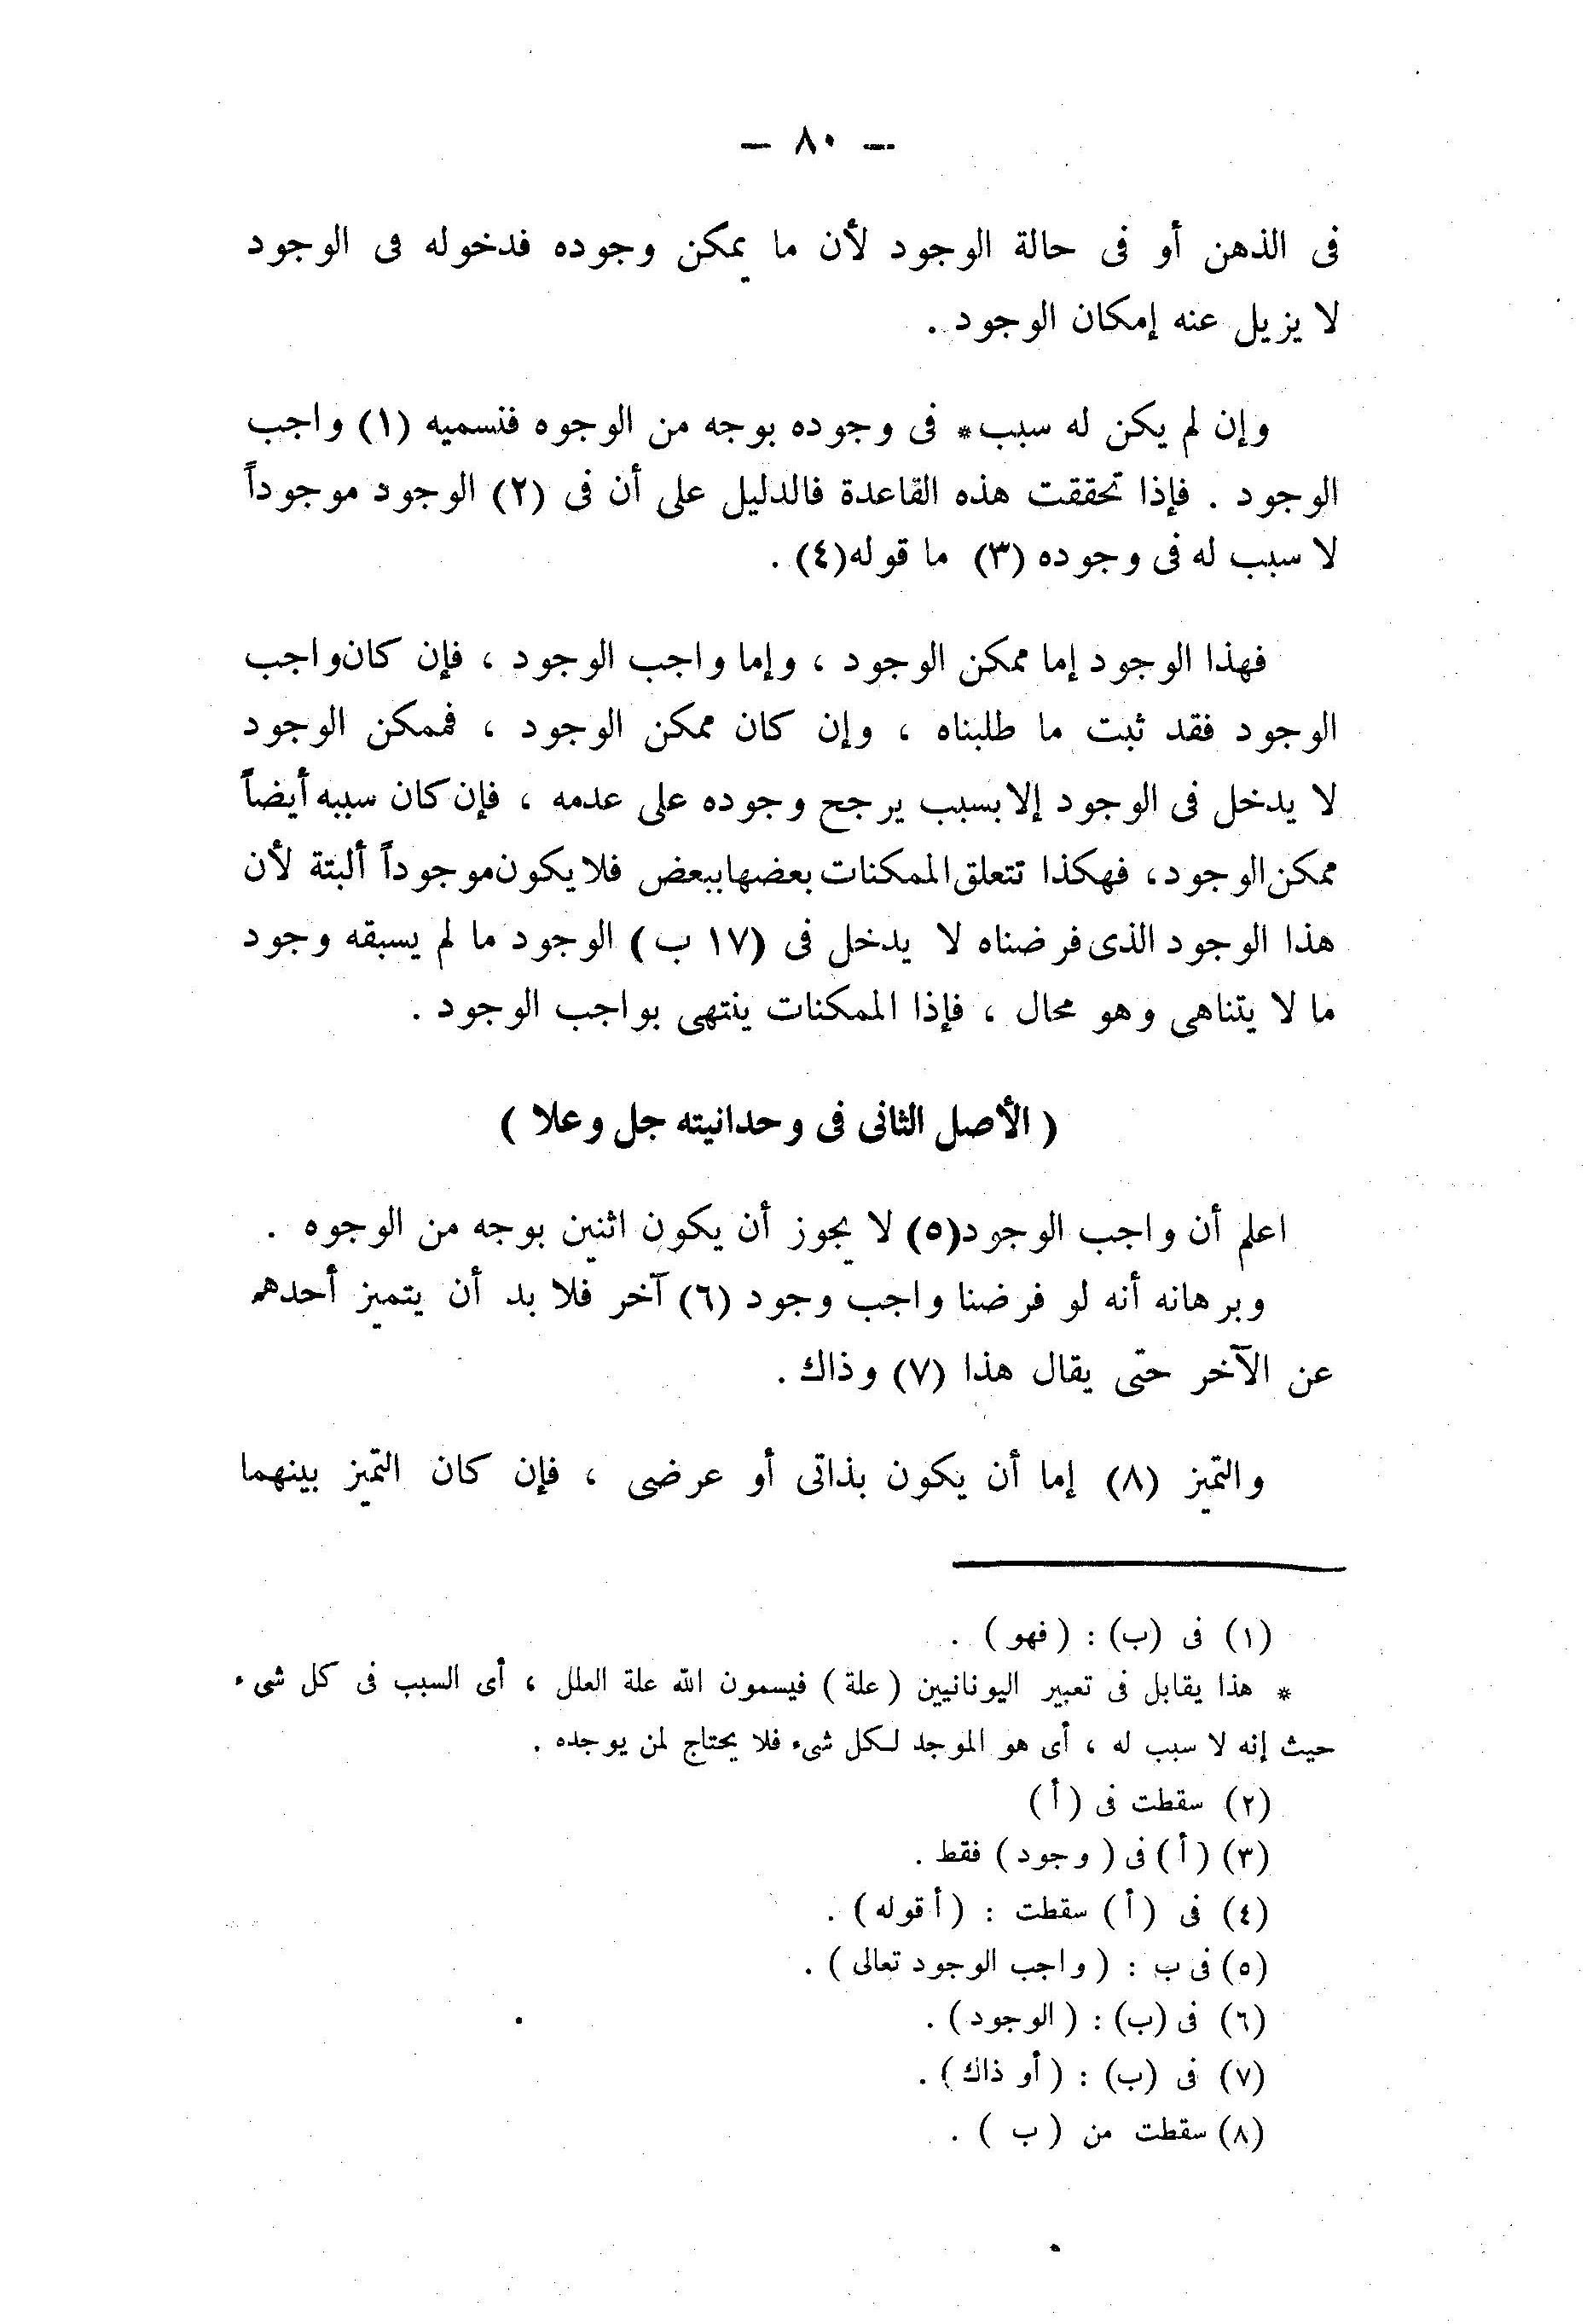 — ٨٠ —
فى الذهن أو فى حالة الوجود لأن ما يمكن وجوده فدخوله فى الوجود
لا يزيل عنه إمكان الوجود .
وإن لم يكن له سبب* فى وجوده بوجه من الوجوه فنسميه (١) واجب
الوجود . فإذا تحققت هذه القاعدة فالدليل على أن فى (٢) الوجود موجوداً
لا سبب له فى وجوده (٣) ما قوله(٤) .
فهذا الوجود إما ممكن الوجود ، وإما واجب الوجود ، فإن كان واجب
الوجود فقد ثبت ما طلبناه ، وإن كان ممكن الوجود ، فممكن الوجود
لا يدخل فى الوجود إلا بسبب يرجح وجوده على عدمه ، فإن كان سببه أيضاً
ممكن الوجود، فهكذا تتعلق الممكنات بعضها ببعض فلا يكون موجوداً ألبتة لأن
هذا الوجود الذى فرضناه لا يدخل فى (١٧ ب) الوجود ما لم يسبقه وجود
ما لا يتناهى وهو محال ، فإذا الممكنات ينتهى بواجب الوجود .
( الأصل الثانى فى وحدانيته جل وعلا )
اعلم أن واجب الوجود(٥) لا يجوز أن يكون اثنين بوجه من الوجوه .
وبرهانه أنه لو فرضنا واجب وجود (٦) آخر فلا بد أن يتميز أحدهم
عن الآخر حتى يقال هذا (٧) وذاك .
والتميز (٨) إما أن يكون بذاتى أو عرضى ، فإن كان التميز بينهما
(١) فى (ب) : ( فهو ) .
* هذا يقابل فى تعبير اليونانيين ( علة ) فيسمون الله علة العلل ، أى السبب فى كل شىء
حيث إنه لا سبب له ، أى هو الموجد لكل شىء فلا يحتاج لمن يوجده .
(٢) سقطت فى ( أ )
(٣) ( أ ) فى ( وجود ) فقط .
(٤) فى ( أ ) سقطت : ( أقوله ) .
(٥) فى ب : ( واجب الوجود تعالى ) .
(٦) فى (ب) : ( الوجود ) .
(٧) فى (ب) : ( أو ذاك ) .
(٨) سقطت من ( ب ) .